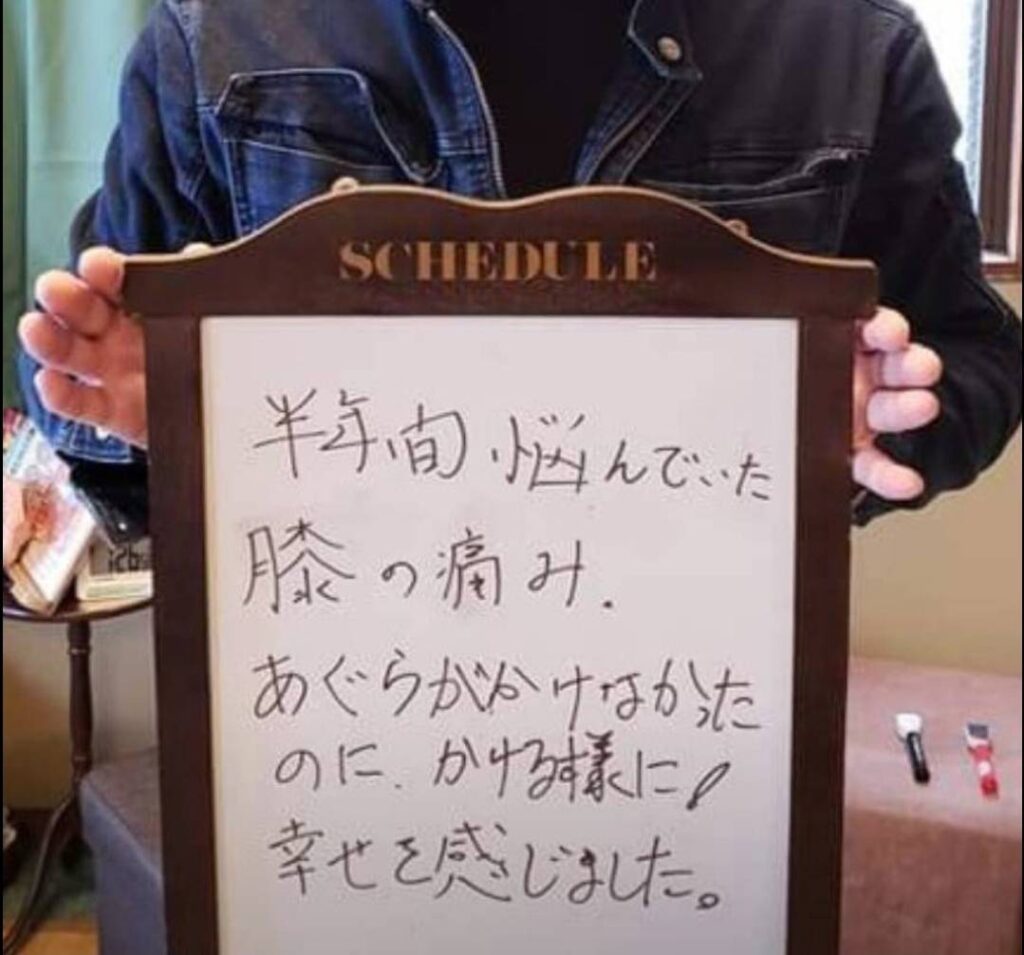 SCHEDULE
半年間悩んでいた
膝の痛み.
あぐらがかけなかった
のに、かける様に!
幸せを感じました。